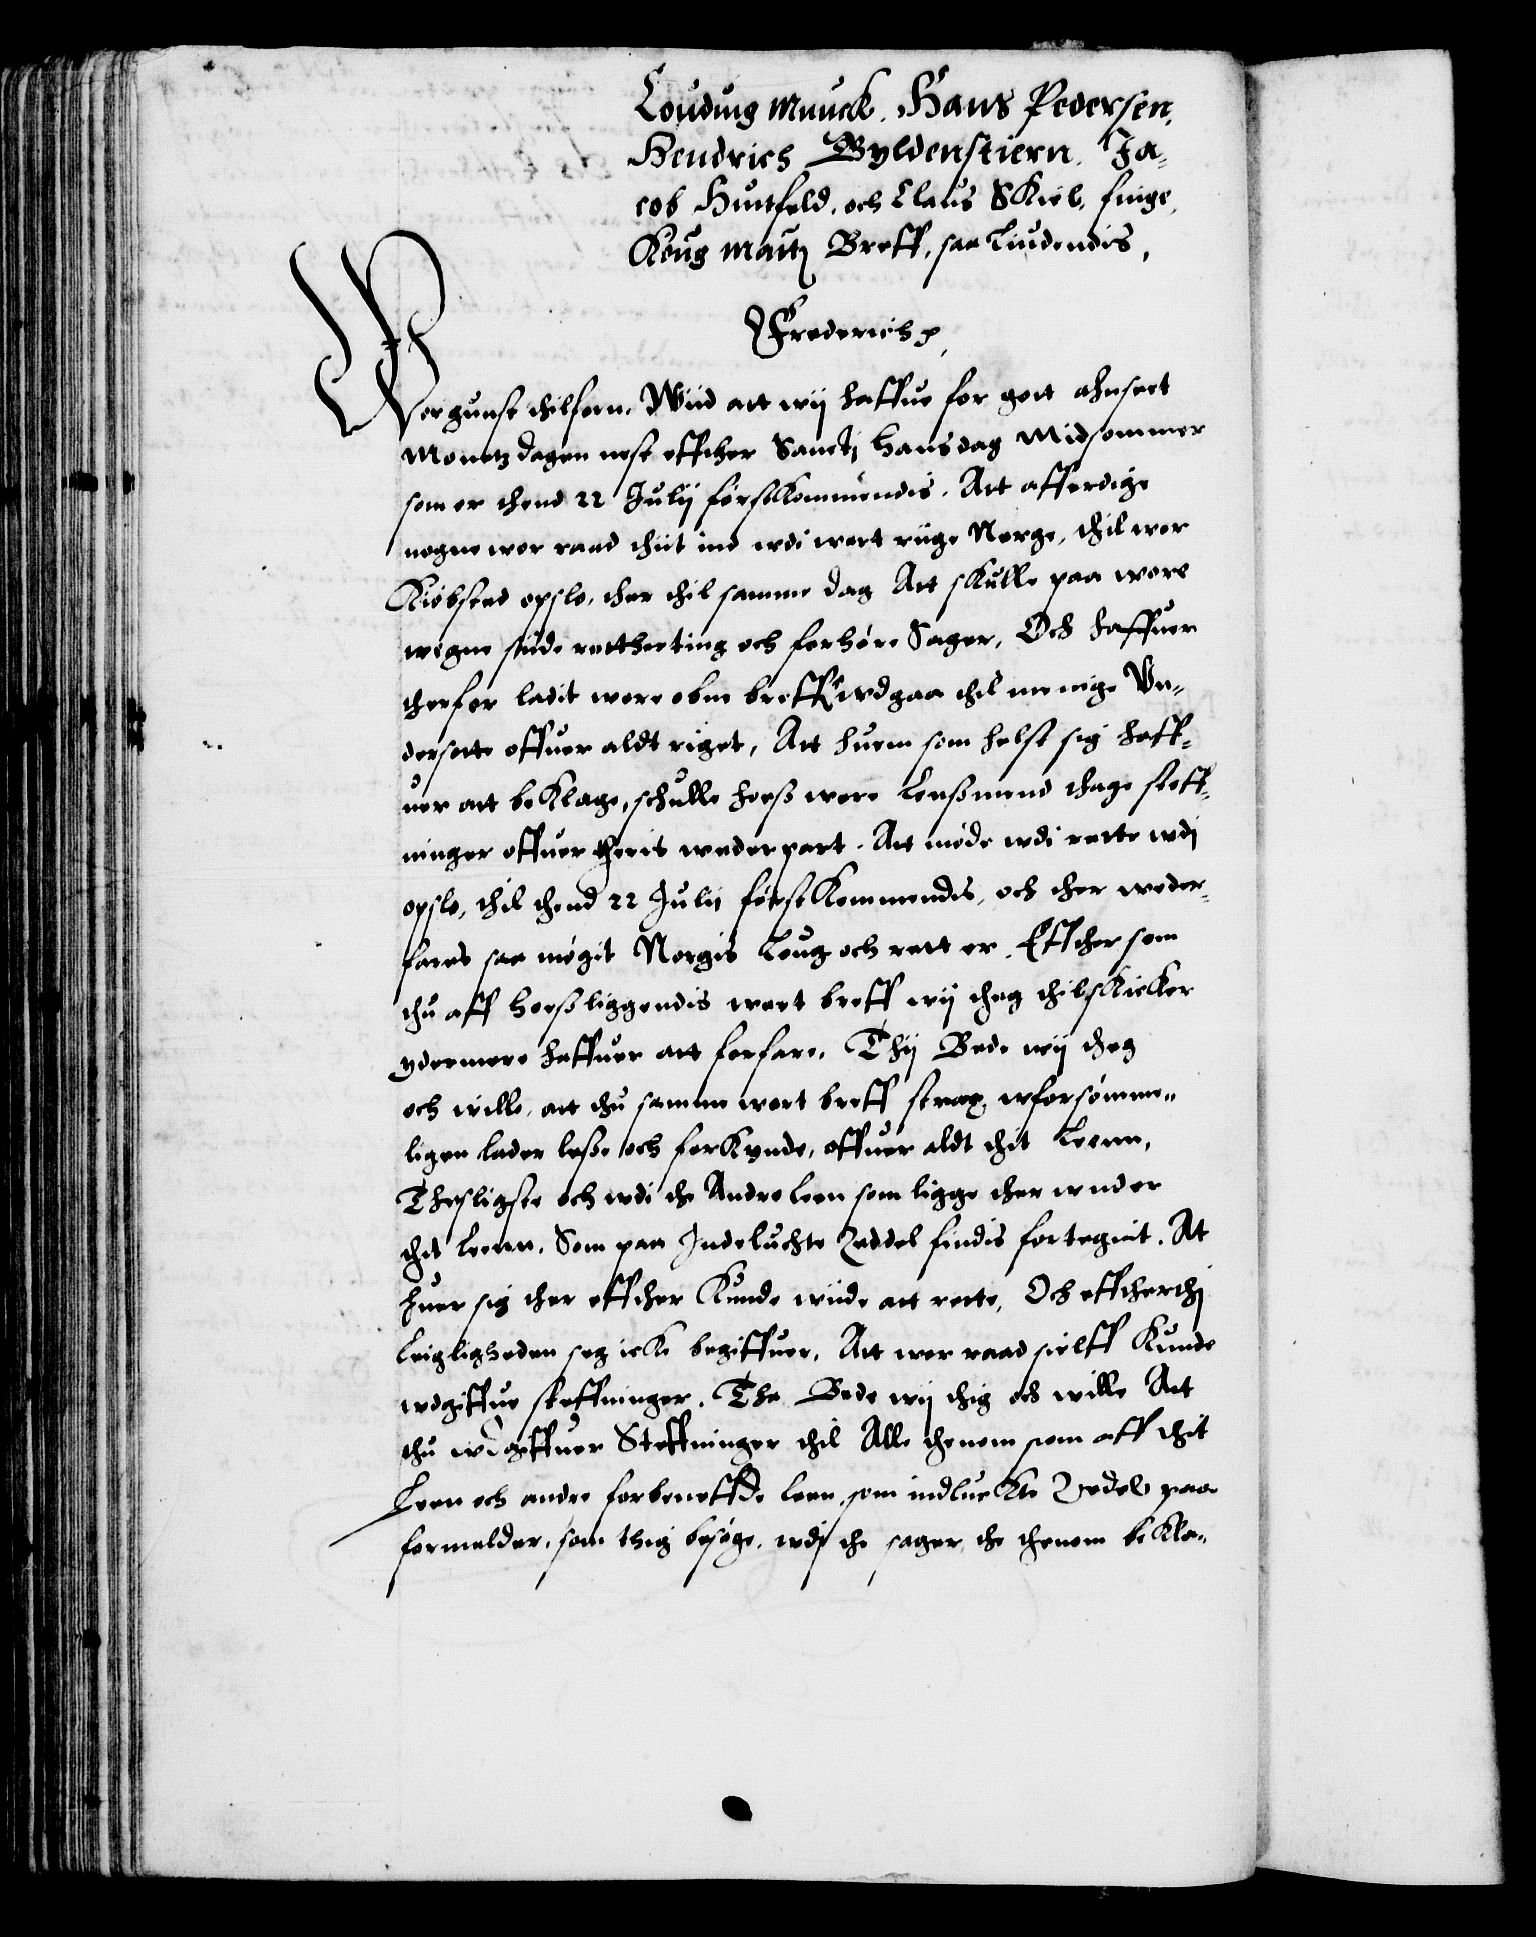 Loudug Munck. Hans Pedersen,
Hendrich Gyldenstiern. Ja-
cob Huitfeld. och Claus Skiel, finge
Kong Maitz Breff, saa liudendis,
Frederich p
Wor gunst thilforn. Wiid att wij haffue for gott ahnseet
Montz dagen nest effther Sanctj Hansdag Midsommer
som er thend 22 Julij førstkommendis. Att afferdige
nogne wor raad thiit ind wdi wort riige Norge, thil wor
Kiøbsted opslo, ther thil samme dag Att skulle paa wore
wegne siide retterting och forhøre Sager, Och haffuer
therfor ladit wore obne breff wdgaa thil menige Un-
dersotte offuer aldt riget, Att huem som helst sig haff-
uer att beklage, schulle hoess wore Lenssmend thage steff-
ninger offuer theris wederpart. Att møde wdi rette wdj
opslo, thil thend 22 Julij førstkommendis, och ther weder-
fares saa møgit Norgis Loug och rett er. Effther som
thu aff hossliggendis wort breff wij theg thilskicker
ydermere haffuer att forfare, Thij Bede wij theg
och wille, att thu samme wort breff strax, wforsømme-
ligen lader lesse och forkynde, offuer aldt thit Leenn,
Thesligste och wdi the Andre leen som ligge ther wnder
thit leenn, Som paa Indeluchte Zeddel findis fortegnit. At
huer sig ther effther kunde wiide att rette, Och effhterthj
leigligheden seg icke begiffuer, Att wor raad sielff kunde
wdgiffue steffninger. Tha Bede wij thig och wille Att
thu wdgiffuer Steffninger thil Alle thenom som aff thit
Leen och andre forbeneffde leen, som indluckte Zedel paa
formelder, som thig besøge, wdj the sager, the thenom bekla-